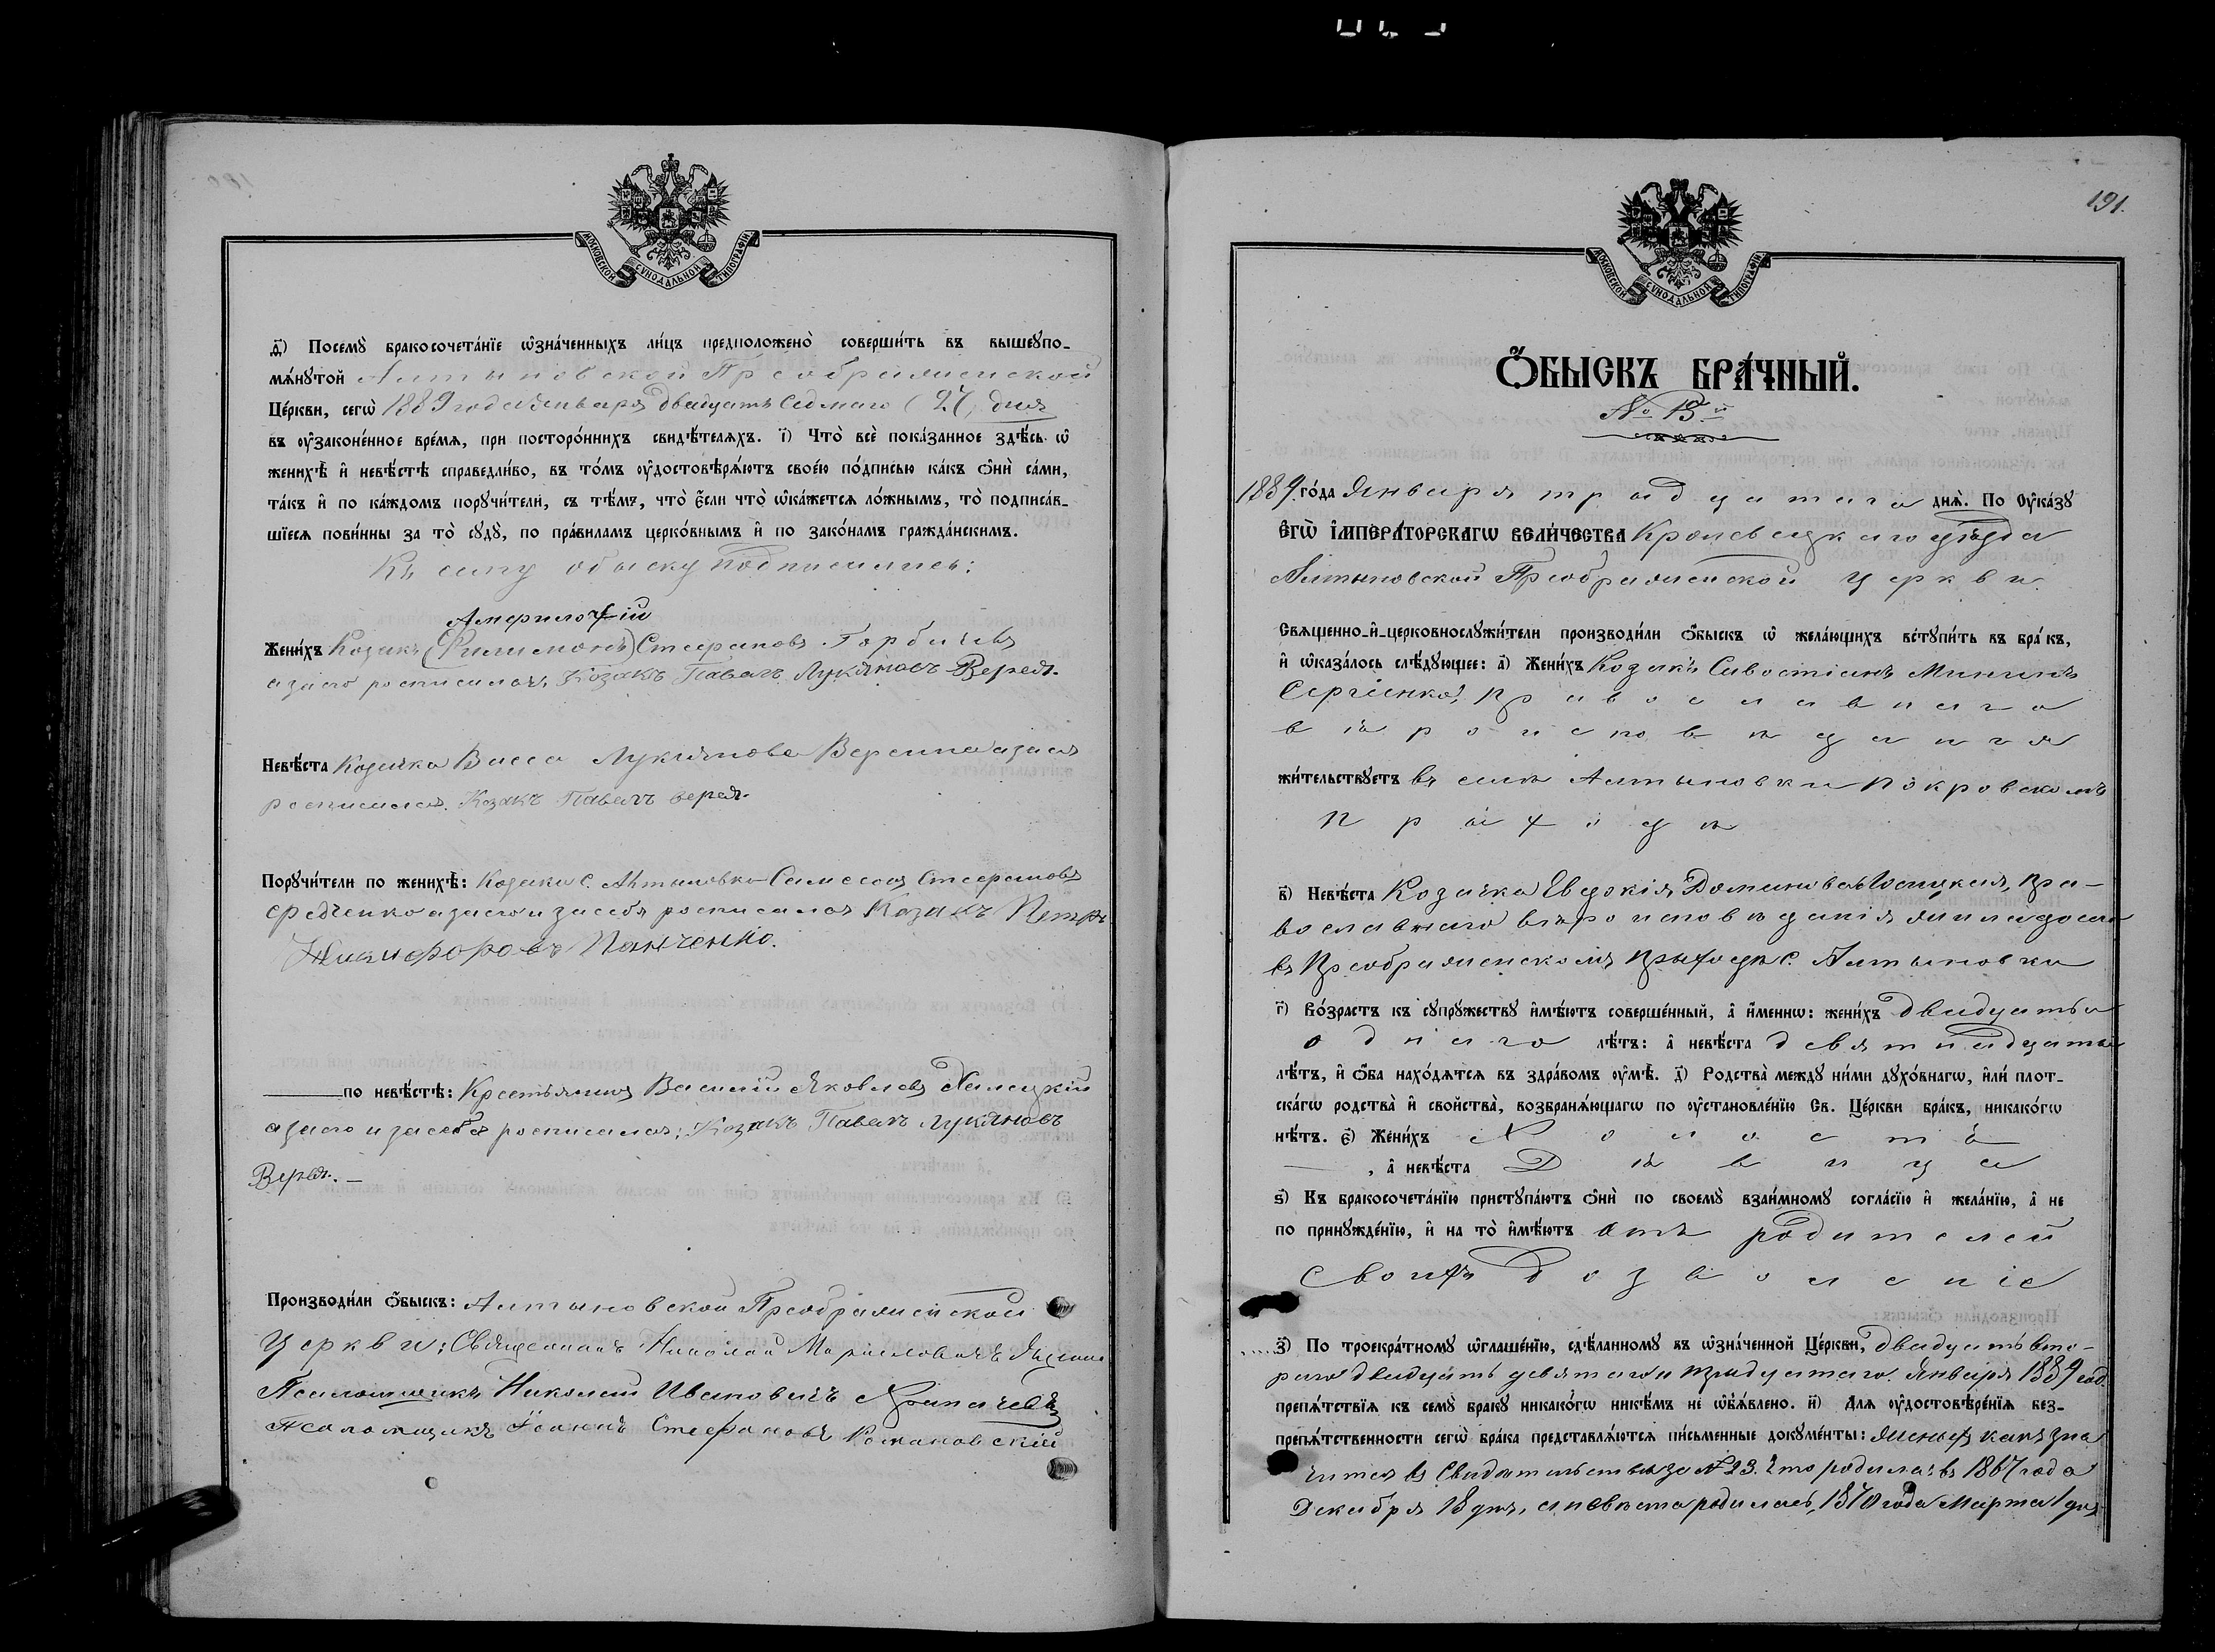 МОСКОВСКОЙ СѴНОДАЛЬНОЙ ТИПОГРАФІИ
д҃) Посемꙋ бракосочета́нїе ѡ҆зна́ченныхъ ли́цъ предположено̀ соверши́ть въ вышеꙋпо-
мѧ́нꙋтой Алтыновской Преображенской
Це́ркви, сегѡ̀ 1889 года Января двадцать седмаго (27) дня
въ ᲂу҆законе́нное вре́мѧ, при посторо́ннихъ свидѣ́телѧхъ. і҃) Что̀ всѐ пока́занное здѣ́сь ѡ҆
женихѣ̀ и҆ невѣ́стѣ справедли́во, въ то́мъ ᲂу҆достовѣрѧ́ютъ свое́ю по́дписью ка́къ ѻ҆нѝ са́ми,
та́къ и҆ по ка́ждомъ порꙋчи́тели, съ тѣ́мъ, что̀ є҆́сли что̀ ѡ҆ка́жется ло́жнымъ, то̀ подписа́в-
шїесѧ пови́нны за то̀ сꙋдꙋ̀, по пра́виламъ церко́внымъ и҆ по зако́намъ гражда́нскимъ.
Къ сему обыску подписались:
Жени́хъ Козакъ (Филимонъ) Стефановъ
а за его росписался, Козакъ Павелъ Лукяновъ Вереᲂ
Невѣ́ста Козачка Васса Лукьянова
росписался. Козакъ Павелъ
Порꙋчи́тели по женихѣ̀: Козаки с. Алтыновки Самсонъ Стефановъ
а за его и за себя росписался Козакъ Петръ
Никифоровъ Панченко.
по невѣ́стѣ: Крестьянинъ Василій Яковлевъ Халецкій
а за его и за себя росписался: Козакъ Павелъ Лукяновъ
Производи́ли ѻ҆́быскъ: Алтыновской Преображенской
Церкви: Священникъ Николай
Псаломщикъ Николай Ивановичъ
Псаломщикъ Іоаннъ Стефановъ Романовскій
191.
МОСКОВСКОЙ СѴНОДАЛЬНОЙ ТИПОГРАФІИ
Ѻ҆БЫСКЪ БРА́ЧНЫЙ.
№ 15й
1889 го́да Января тридцатаго днѧ̀. По ᲂу҆ка́зꙋ
Є҆ГѠ̀ І҆МПЕРА́ТОРСКАГѠ ВЕЛИ́ЧЕСТВА Кролевецкаго уѣзда
Алтыновской Преображенской церкви
Свѧще́нно-и҆-церковнослꙋжи́тели производи́ли ѻ҆́быскъ ѡ҆ жела́ющихъ встꙋпи́ть въ бра́къ,
и҆ ѡ҆каза́лось слѣ́дꙋющее: а҃) Жени́хъ Козакъ Савостіанъ Мининъ
Сергіенко, православнаго
вѣроисповѣданія
жи́тельствꙋетъ въ селѣ Алтыновки Покровскомъ
приходѣ
в҃) Невѣ́ста Козачка Евдокія пра-
вославнаго вѣроисповѣданія
въ Преображенскомъ приходѣ с. Алтыновки
г҃) Во́зрастъ къ сꙋпрꙋ́жествꙋ и҆мѣ́ютъ соверше́нный, а҆ и҆́меннѡ: жени́хъ двадцать
одного лѣ́тъ: а҆ невѣ́ста девятнадцать
лѣ́тъ, и҆ ѻ҆́ба нахо́дѧтсѧ въ здра́вомъ ᲂу҆мѣ̀. д҃) Родства̀ междꙋ ни́ми дꙋхо́внагѡ, и҆лѝ плот-
ска́гѡ родства̀ и҆ сво́йства̀, возбранѧ́ющагѡ по ᲂу҆становле́нїю Св. Це́ркви бра́къ, никако́гѡ
нѣ́тъ. є҃) Жени́хъ Холостъ
, а҆ невѣ́ста Дѣвица
ѕ҃) Къ бракосочета́нїю пристꙋпа́ютъ ѻ҆нѝ по своемꙋ̀ взаи́мномꙋ согла́сїю и҆ жела́нїю, а҆ не
по принꙋжде́нїю, и҆ на то̀ и҆мѣ́ютъ отъ родителей
своихъ дозволеніе
з҃) По троекра́тномꙋ ѡ҆глаше́нїю, сдѣ́ланномꙋ въ ѡ҆зна́ченной Це́ркви, двадцать вто-
раго двадцать девятаго и тридцатаго Января 1889 год.
препѧ́тствїѧ къ семꙋ̀ бракꙋ никако́гѡ никѣ́мъ не ѡ҆б̾ѧ́влено. и҃) Длѧ ᲂу҆достовѣре́нїѧ без-
препѧ́тственности сегѡ̀ бра́ка представлѧ́ютсѧ пи́сьменные докꙋме́нты: Женихъ какъ зна
чится въ Свидѣтельствѣ за № 23. что родился въ 1867 года
Декабря 18 дня, а невѣста родилась, 1870 года Марта 1 дня